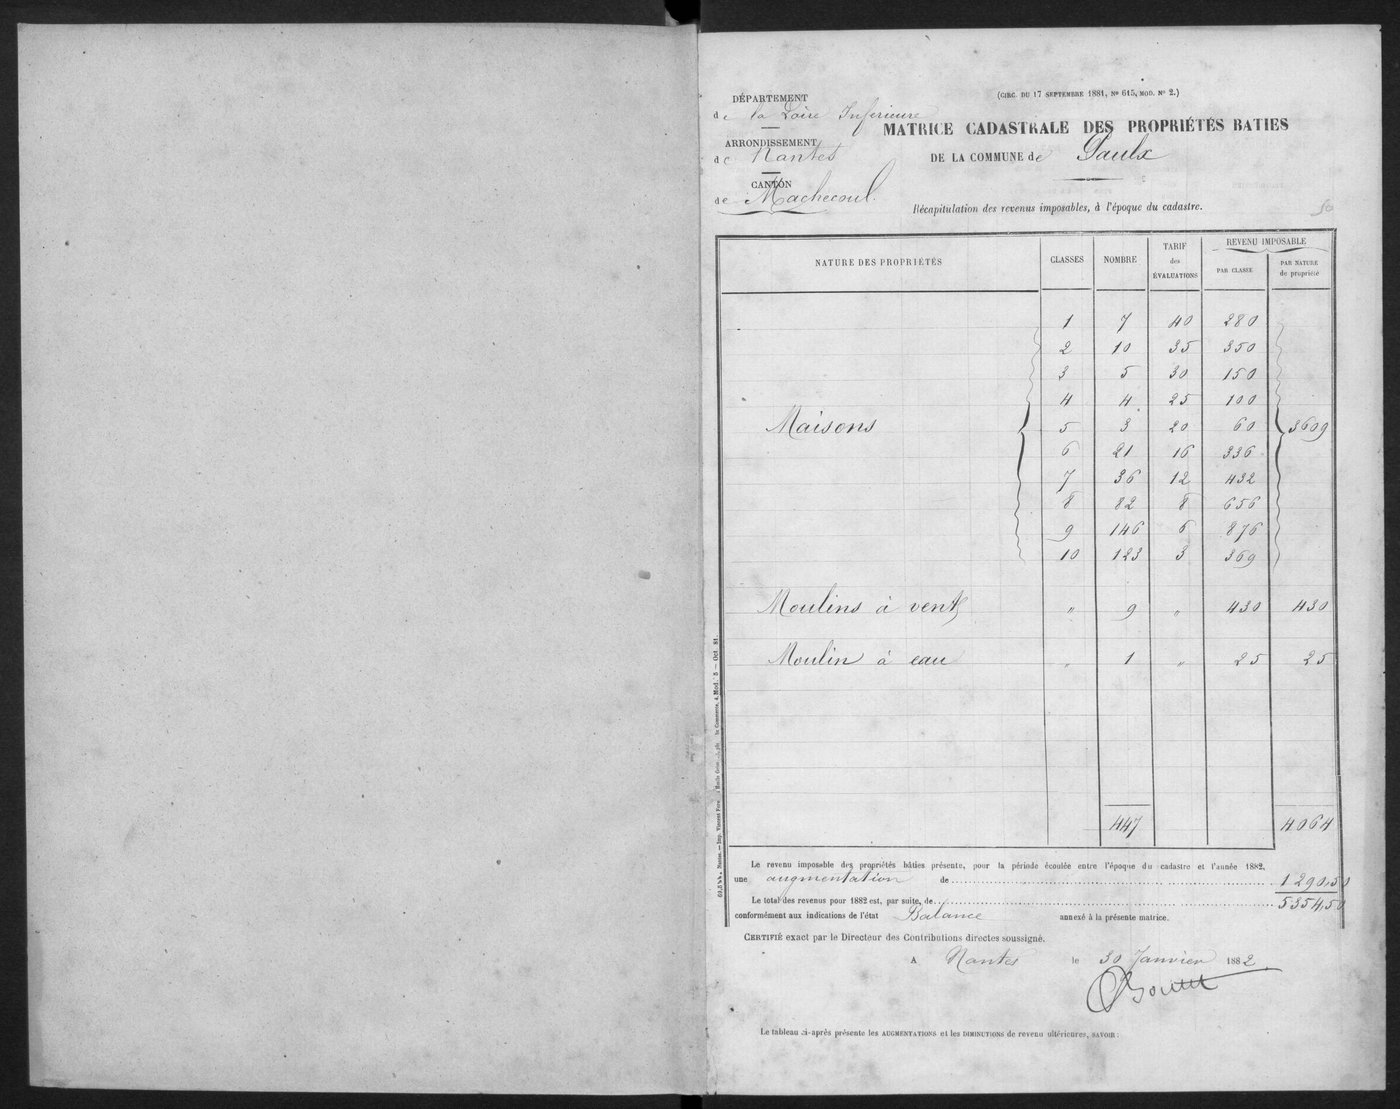 (CIRC. DU 17 SEPTEMBRE 1881, N° 615, MOD. N° 2.)
DÉPARTEMENT
de la Loire Inférieure
ARRONDISSEMENT
de Nantes
CANTON
de Machecoul.
MATRICE CADASTRALE DES PROPRIÉTÉS BATIES
DE LA COMMUNE de Paulx
Récapitulation des revenus imposables, à l'époque du cadastre.
NATURE DES PROPRIÉTÉS CLASSES NOMBRE TARIF des ÉVALUATIONS REVENU IMPOSABLE
PAR CLASSE PAR NATURE de propriété
1 7 40 280
2 10 35 350
3 5 30 150
4 4 25 100
Maisons 5 3 20 60 3609
6 21 16 336
7 36 12 432
8 82 8 656
9 146 6 876
10 123 3 369
Moulins à vent " 9 " 430 430
Moulin à eau " 1 " 25 25
447 4064
Le revenu imposable des propriétés bâties présente, pour la période écoulée entre l'époque du cadastre et l'année 1882,
une augmentation de 1290,50
Le total des revenus pour 1882 est, par suite, de 5354,50
conformément aux indications de l'état Balance annexé à la présente matrice.
CERTIFIÉ exact par le Directeur des Contributions directes soussigné.
A Nantes le 30 Janvier 1882
Le tableau ci-après présente les AUGMENTATIONS et les DIMINUTIONS de revenu ultérieures, SAVOIR :